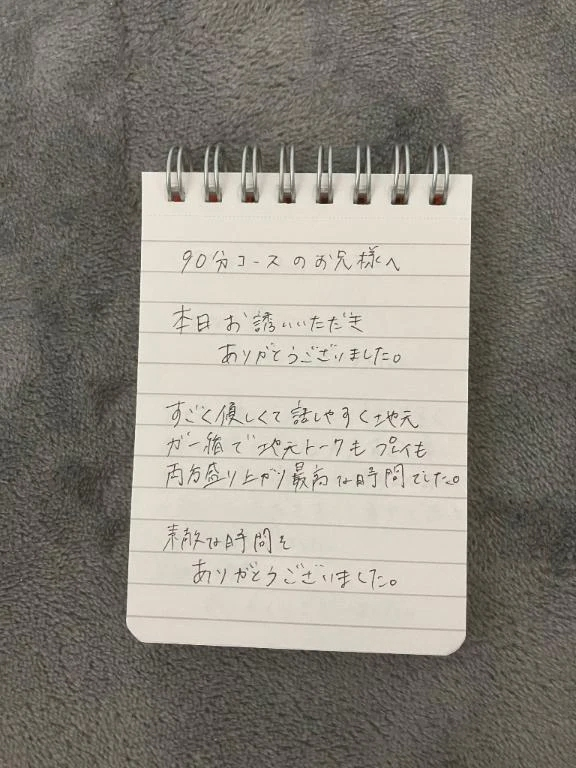 90分コースのお兄様へ
本日お誘いいただき
ありがとうございました。
すごく優しくて話しやすく地元
が一緒で地元トークもプレイも
両方盛り上がり最高な時間でした。
素敵な時間を
ありがとうございました。